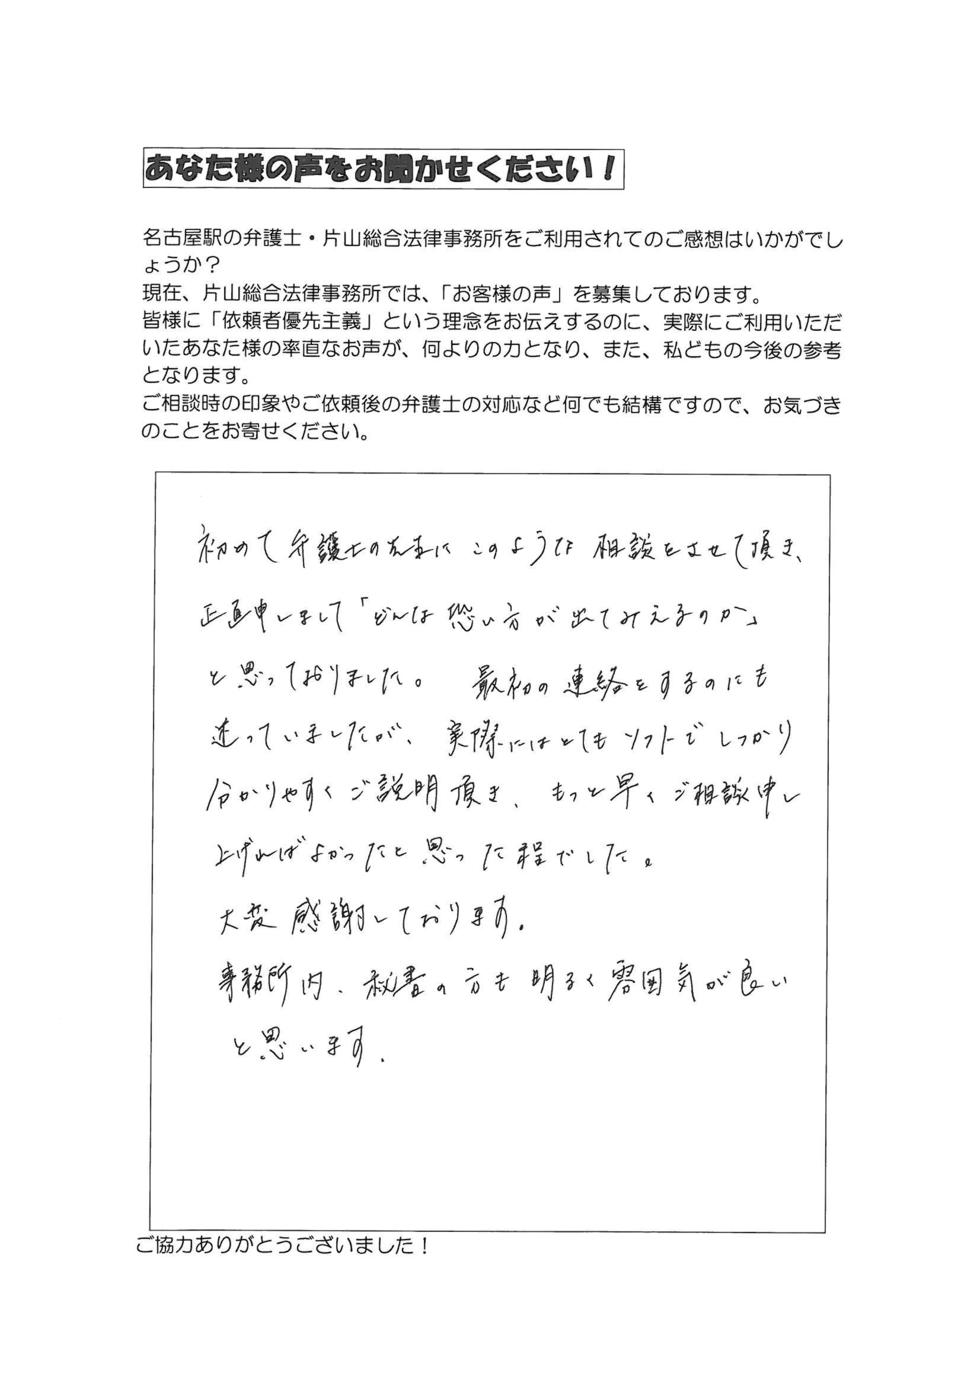 あなた様の声をお聞かせください！
名古屋駅の弁護士・片山総合法律事務所をご利用されてのご感想はいかがでし
ょうか？
現在、片山総合法律事務所では、「お客様の声」を募集しております。
皆様に「依頼者優先主義」という理念をお伝えするのに、実際にご利用いただ
いたあなた様の率直なお声が、何よりの力となり、また、私どもの今後の参考
となります。
ご相談時の印象やご依頼後の弁護士の対応など何でも結構ですので、お気づき
のことをお寄せください。
初めて弁護士の先生にこのような相談をさせて頂き、
正直申しまして「どんな恐い方が出てみえるのか」
と思っておりました。最初の連絡をするのにも
迷っていましたが、実際にはとてもソフトでしっかり
分かりやすくご説明頂き、もっと早くご相談申し
上げればよかったと思った程でした。
大変感謝しております。
事務所内、秘書の方も明るく雰囲気が良い
と思います。
ご協力ありがとうございました！